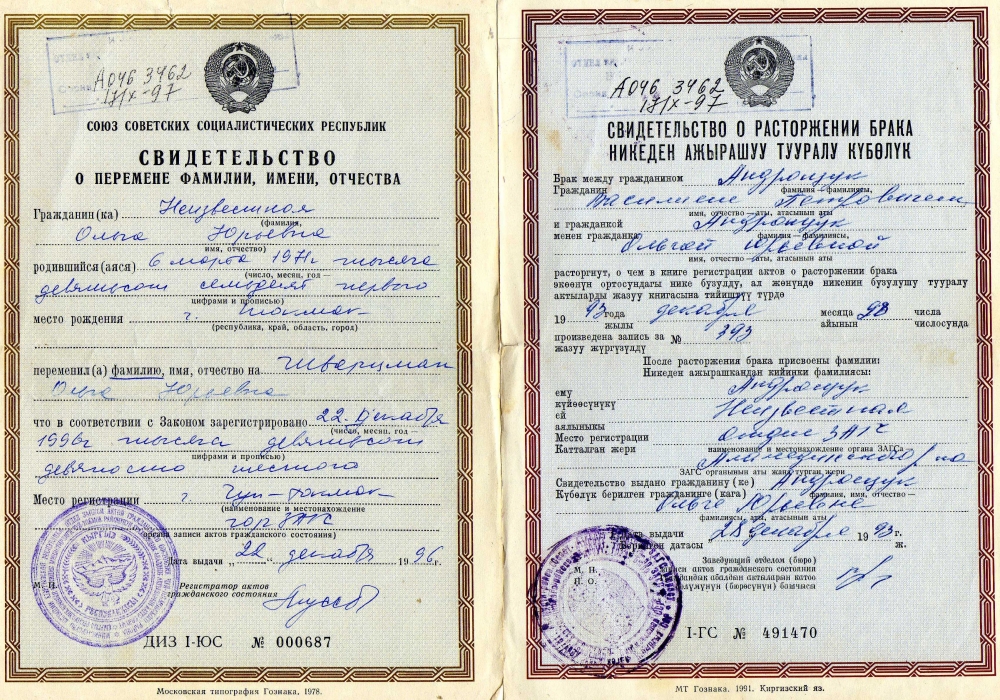 А046 3462
17/X-97
СОЮЗ СОВЕТСКИХ СОЦИАЛИСТИЧЕСКИХ РЕСПУБЛИК
СВИДЕТЕЛЬСТВО
О ПЕРЕМЕНЕ ФАМИЛИИ, ИМЕНИ, ОТЧЕСТВА
Гражданин(ка) Неизвестная
(фамилия,
Ольга Юрьевна
имя, отчество)
родившийся(аяся) 6 марта 1971г тысяча
(число, месяц, год —
девятьсот семьдесят первого
цифрами и прописью)
место рождения г. Токмак
(республика, край, область, город)
переменил(а) фамилию, имя, отчество на Шварцман
Ольга Юрьевна
что в соответствии с Законом зарегистрировано 22 декабря
(число, месяц, год —
1996г тысяча девятьсот
цифрами и прописью)
девяносто шестого
Место регистрации г. Чуй-Токмак
(наименование и местонахождение
горЗАГС
органа записи актов гражданского состояния)
Дата выдачи „22" декабря 1996г.
М. П.
Регистратор актов
гражданского состояния
ДИЗ I-ЮС № 000687
Московская типография Гознака. 1978.
А046 3462
17/X-97
СВИДЕТЕЛЬСТВО О РАСТОРЖЕНИИ БРАКА
НИКЕДЕН АЖЫРАШУУ ТУУРАЛУ КҮБӨЛҮК
Брак между гражданином Андрощук
Гражданин фамилия–фамилиясы,
Василием Петровичем
имя, отчество–аты, атасынын аты
и гражданкой Андрощук
менен гражданка фамилия–фамилиясы,
Ольгой Юрьевной
имя, отчество–аты, атасынын аты
расторгнут, о чем в книге регистрации актов о расторжении брака
экөөнүн ортосундагы нике бузулду, ал жөнүндө никенин бузулушу тууралу
актыларды жазуу книгасына тийиштүү түрдө
1993 года декабря месяца 28 числа
жылы айынын числосунда
произведена запись за № 293
жазуу жүргүзүлдү
После расторжения брака присвоены фамилии:
Никеден ажырашкандан кийинки фамилиясы:
ему Андрощук
күйөөсүнүкү
ей Неизвестная
аялыныкы
Место регистрации отдел ЗАГС
Катталган жери наименование и местонахождение органа ЗАГСа
Аламединского р-на
ЗАГС органынын аты жана турган жери
Свидетельство выдано гражданину (ке) Андрощук
Күбөлүк берилген гражданинге (кага) фамилия, имя, отчество —
Ольге Юрьевне
фамилиясы, аты, атасынын аты
Дата выдачи 28 декабря 1993 г.
Берилген датасы ж.
М. П.
П. О.
Заведующий отделом (бюро)
записи актов гражданского состояния
Граждандык абалдын актыларын катоо
бөлүмүнүн (бюросунун) башчысы
I-ГС № 491470
МТ Гознака. 1991. Киргизский яз.